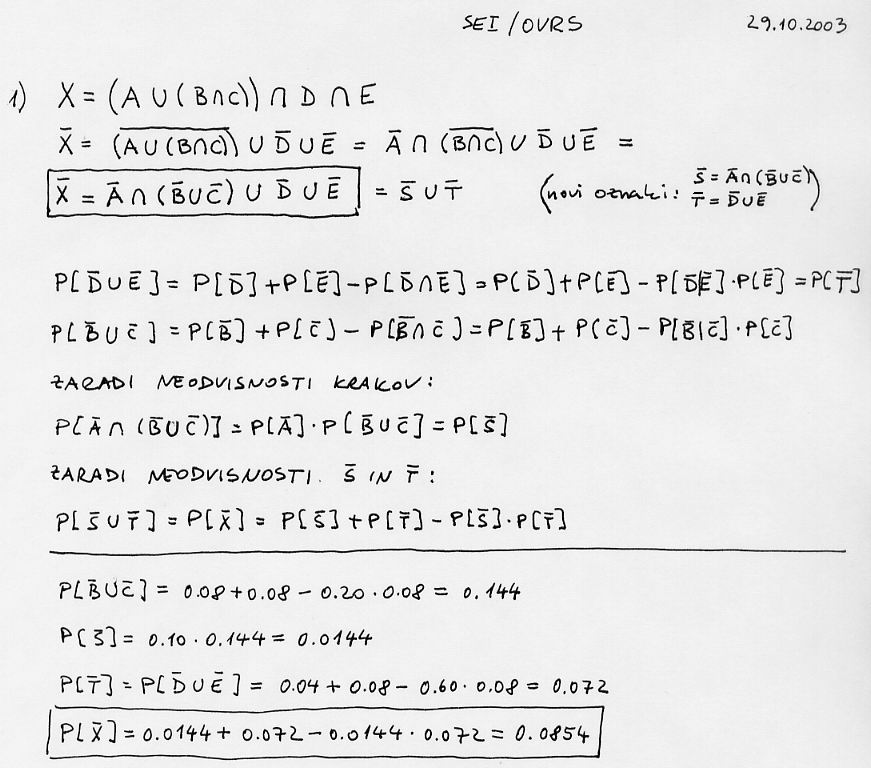 SEI/OVRS 29.10.2003
1) X = (A ∪ (B∩C)) ∩ D ∩ E
X̄ = (A̅∪̅(̅B̅∩̅C̅)̅) ∪ D̄ ∪ Ē = Ā ∩ (B̅∩̅C̅) ∪ D̄ ∪ Ē =
X̄ = Ā ∩ (B̄∪C̄) ∪ D̄ ∪ Ē = S̄ ∪ T̄ (novi oznaki: S̄ = Ā∩(B̄∪C̄)
T̄ = D̄∪Ē)
P[D̄∪Ē] = P[D̄]+P[Ē]-P[D̄∩Ē] = P[D̄]+P[Ē] - P[D̄|Ē]·P[Ē] = P[T̄]
P[B̄∪C̄] = P[B̄]+P[C̄) - P[B̄∩C̄] = P[B̄]+P(C̄] - P[B̄|C̄]·P[C̄]
ZARADI NEODVISNOSTI KRAKOV:
P[Ā∩(B̄∪C̄)] = P[Ā]·P[B̄∪C̄] = P[S̄]
ZARADI NEODVISNOSTI S̄ IN T̄:
P[S̄∪T̄] = P[X̄] = P[S̄]+P[T̄]-P[S̄]·P[T̄]
P[B̄∪C̄] = 0.08+0.08-0.20·0.08 = 0.144
P[S̄] = 0.10·0.144 = 0.0144
P[T̄] = P[D̄∪Ē] = 0.04+0.08-0.60·0.08 = 0.072
P[X̄] = 0.0144+0.072-0.0144·0.072 = 0.0854